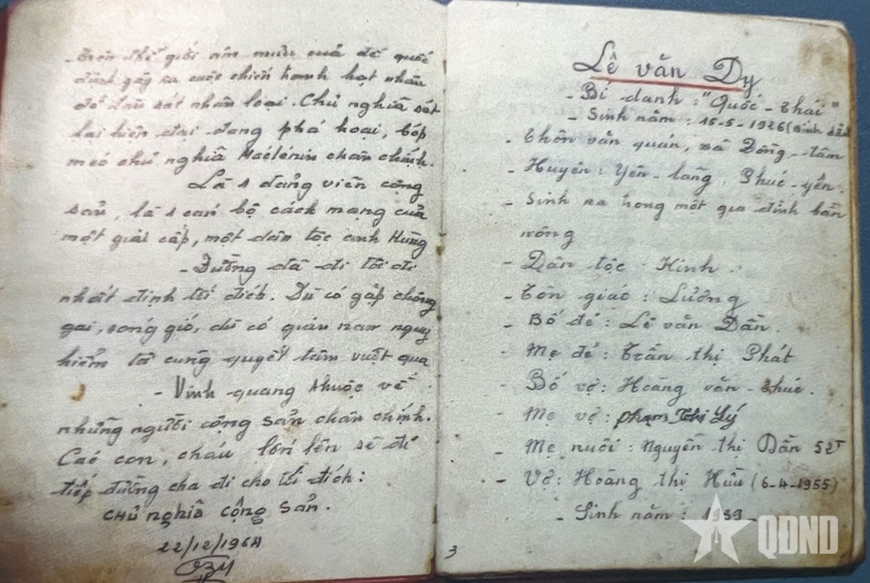 trên thế giới âm mưu của đế quốc
đang gây ra cuộc chiến tranh hạt nhân
để tàn sát nhân loại. Chủ nghĩa sét
lại hiện đại đang phá hoại, bóp
méo chủ nghĩa Máclênin chân chính.
Là 1 đảng viên cộng
sản, là 1 cán bộ cách mạng của
một giải cấp, một dân tộc anh Hùng
- Đường đã đi tôi đi
nhất định tới đích. Dù có gặp chông
gai, sóng gió, dù có gian nan nguy
hiểm tôi cũng quyết tâm vượt qua
- Vinh quang thuộc về
những người cộng sản chân chính.
Các con, cháu lớn lên sẽ đi
tiếp đường cha đi cho tới đích:
CHủ nghĩa Cộng Sản.
22/12/1964
Lê văn Dy
- Bí danh: "Quốc-Thái"
- Sinh năm: 15-5-1926
- Thôn văn quán, xã Đồng-tâm
- Huyện: Yên-lãng, Phúc-yên.
- Sinh ra trong một gia đình bần
nông
- Dân tộc Kinh
- Tôn giáo: Lương
- Bố đẻ: Lê văn Dần.
- Mẹ đẻ: Trần thị Phát
- Bố vợ: Hoàng văn
- Mẹ vợ: phạm Thị Lý
- Mẹ nuôi: Nguyễn thị Dần 52T
- Vợ: Hoàng thị Hữu (6-4-1955)
- Sinh năm: 1939
3
QĐND